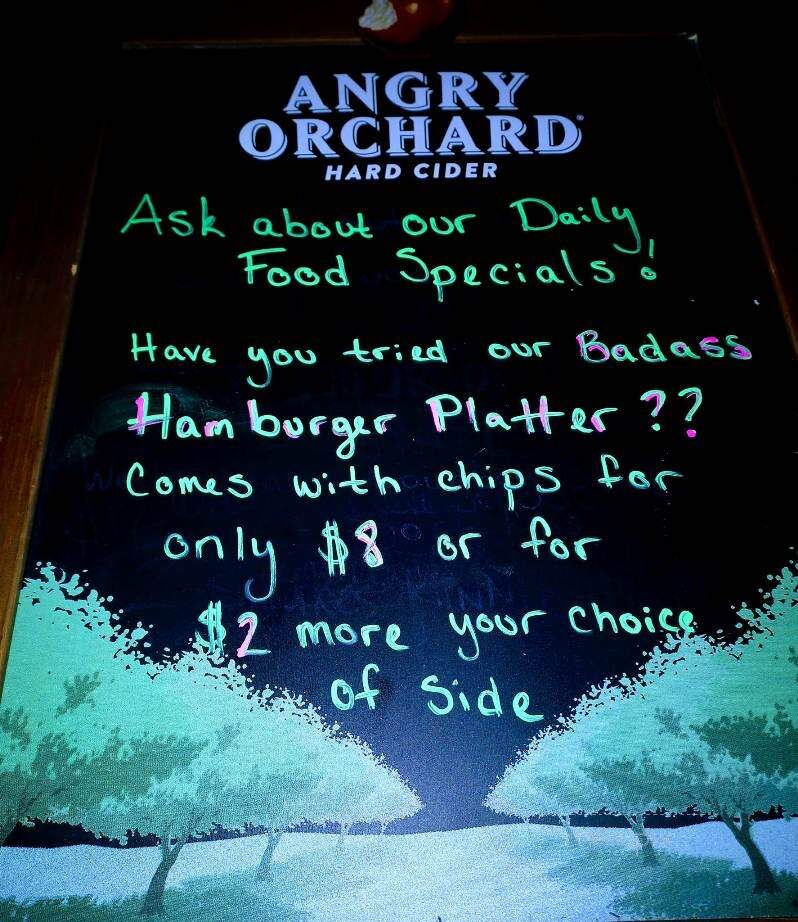 ANGRY
ORCHARD®
HARD CIDER
Ask about our Daily
Food Specials!
Have you tried our Badass
Hamburger Platter ??
Comes with chips for
only $8 or for
$2 more your choice
of Side